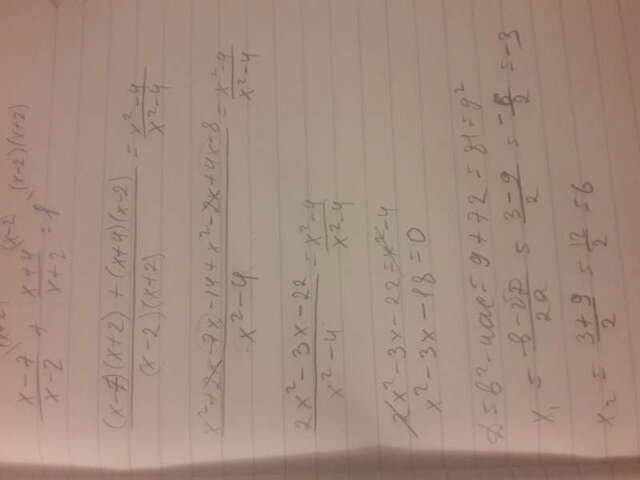 (x-7)/(x-2) \(x+2) + (x+4)/(x+2) \(x-2) = 1 \(x-2)(x+2)
((x-7)(x+2) + (x+4)(x-2))/((x-2)(x+2)) = (x²-4)/(x²-4)
(x²+2x-7x-14+x²-2x+4x-8)/(x²-4) = (x²-4)/(x²-4)
(2x²-3x-22)/(x²-4) = (x²-4)/(x²-4)
2x²-3x-22=x²-4
x²-3x-18=0
D=b²-4ac=9+72=81=9²
x₁ = (-b-√D)/2a = (3-9)/2 = -6/2 = -3
x₂ = (3+9)/2 = 12/2 = 6